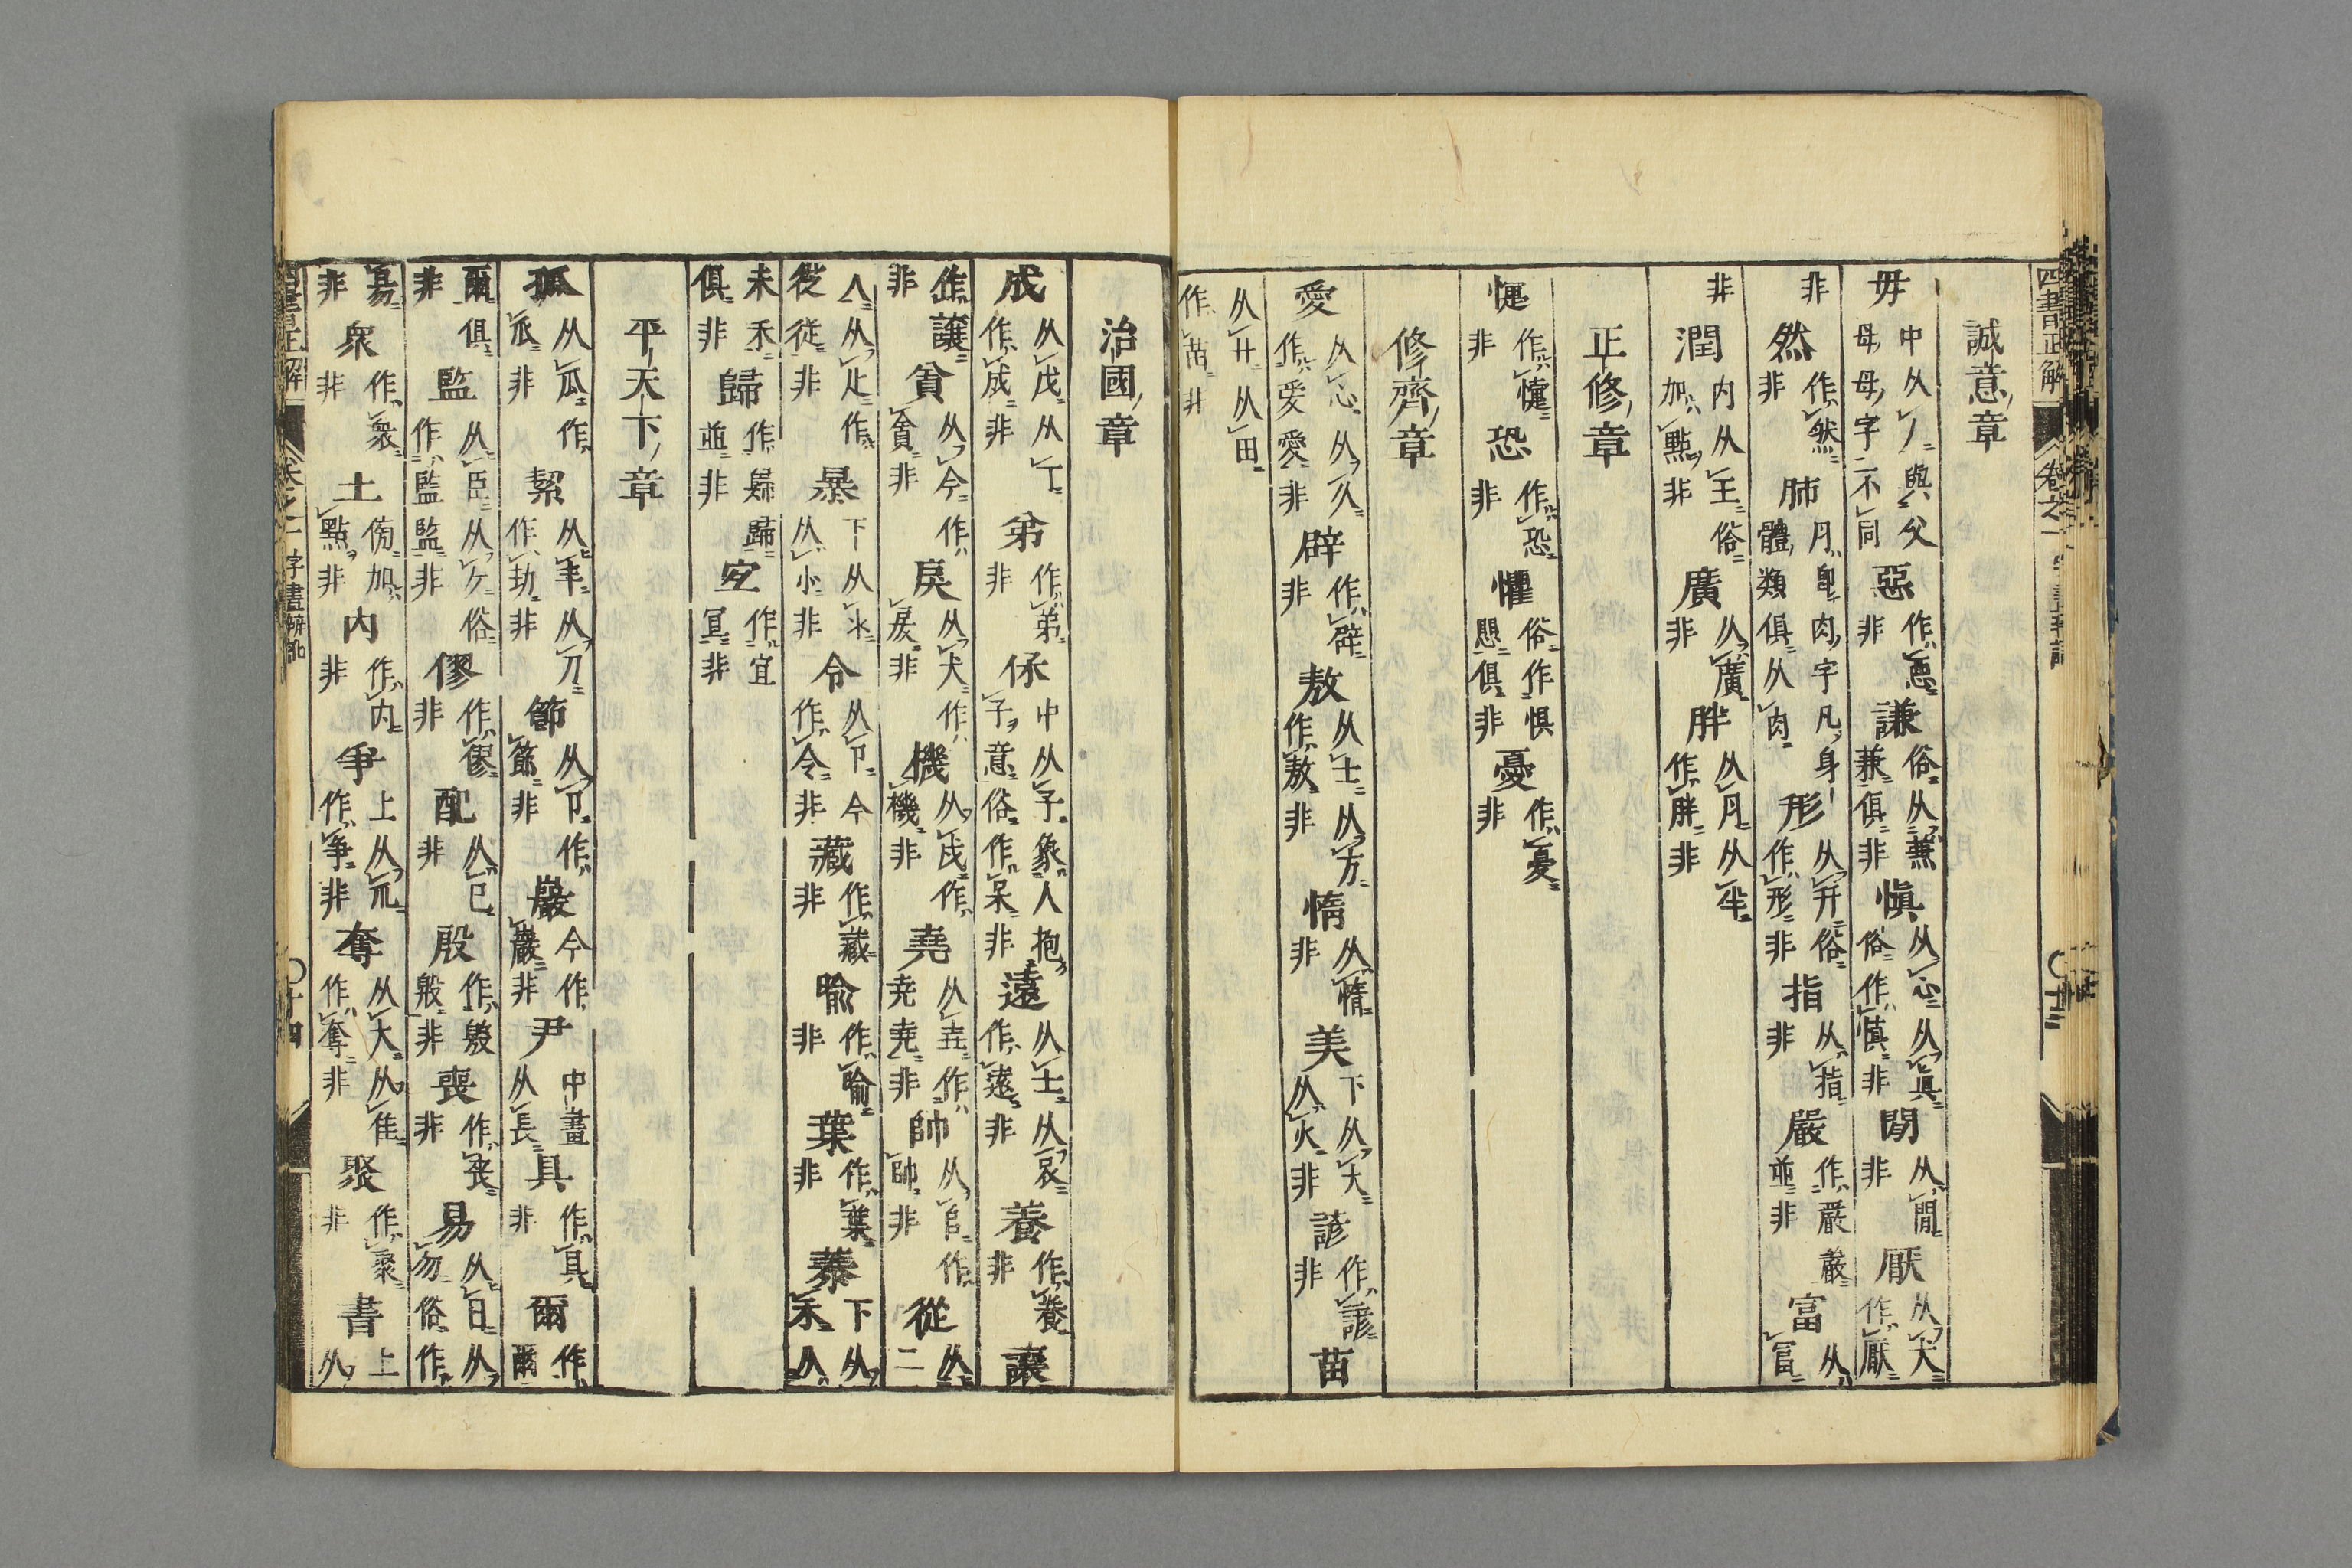 誠意章
毋中从丿與父母母字不同惡作惡非謙俗从蒹兼俱非愼从心从眞俗作慎非閒从閒非厭从犬作厭
非然作然非肺月卽肉字凡身體類俱从肉形从幵俗作形非指从指非嚴作嚴嚴並非富从冨
非潤内从王俗加點非廣从廣非胖从月从半作胖非
正修章
懥作懥非恐作恐非懼俗作惧愳俱非憂作憂非
修齊章
愛从心从夂作爱愛非辟作辟非敖从士从方作敖非惰从惰非美下从大从火非諺作諺非苗
从廾从田作苗非
四書正解 卷之一
治國章
成从戊从丁作成非弟作弟非保中从子象人抱子意俗作呆非遠从士从哀作遠非養作養非讓
作讓非貪从今作貪非戾从犬作戾非機从戍作機非堯从垚作尭堯非帥从㠯作帥非從从二
人从止作従徒非暴下从氺从小非令从卩作令今非藏作藏非喻作喻非葉作葉非蓁下从禾从
未禾俱非歸作歸歸並非宜作宜冝非
平天下章
孤从瓜作㼌非絜从丯从刀作㓞非節从卩作節非嚴今作嚴非尹中畫从長非具作具非爾作爾
爾俱非監从臣从𠂉俗作監監非僇作僇非配从巳非殷作慇殷非喪作喪非易从日从勿俗作
昜非衆作衆非土傍加點非内作内非爭上从爫作争非奪从大从隹作奪非聚作聚非書上从
四書正解 卷之一 字畫辨訛 〇十四